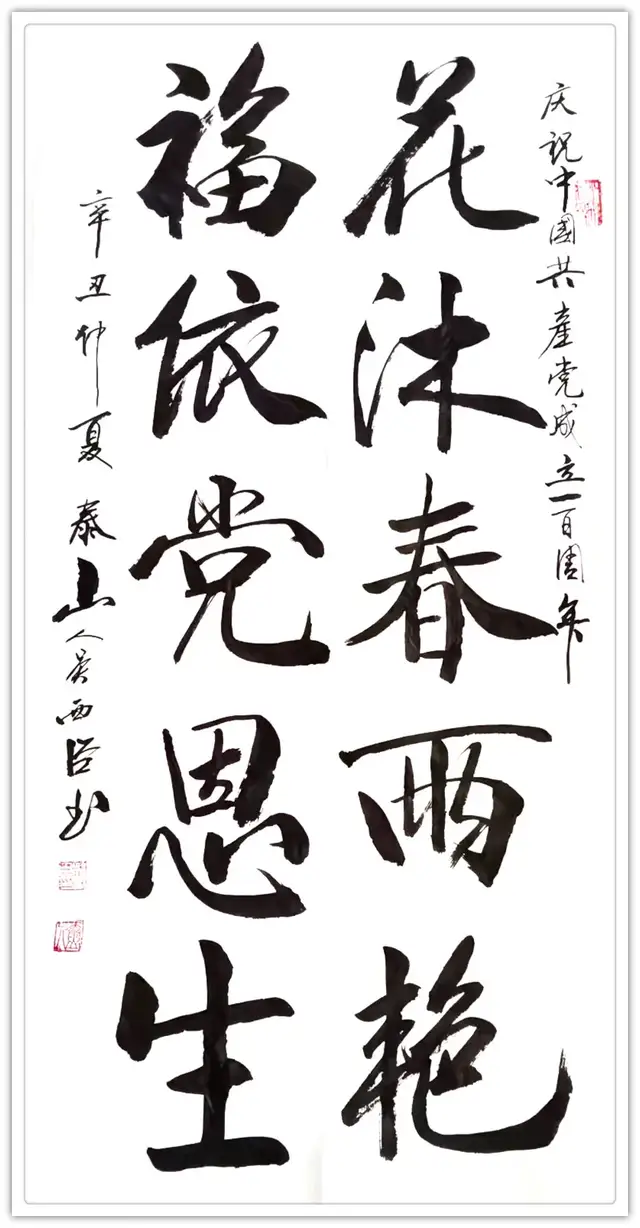 庆祝中國共產党成立一百周年
花沐春雨艳
福依党恩生
辛丑仲夏 泰山人吴西臣书